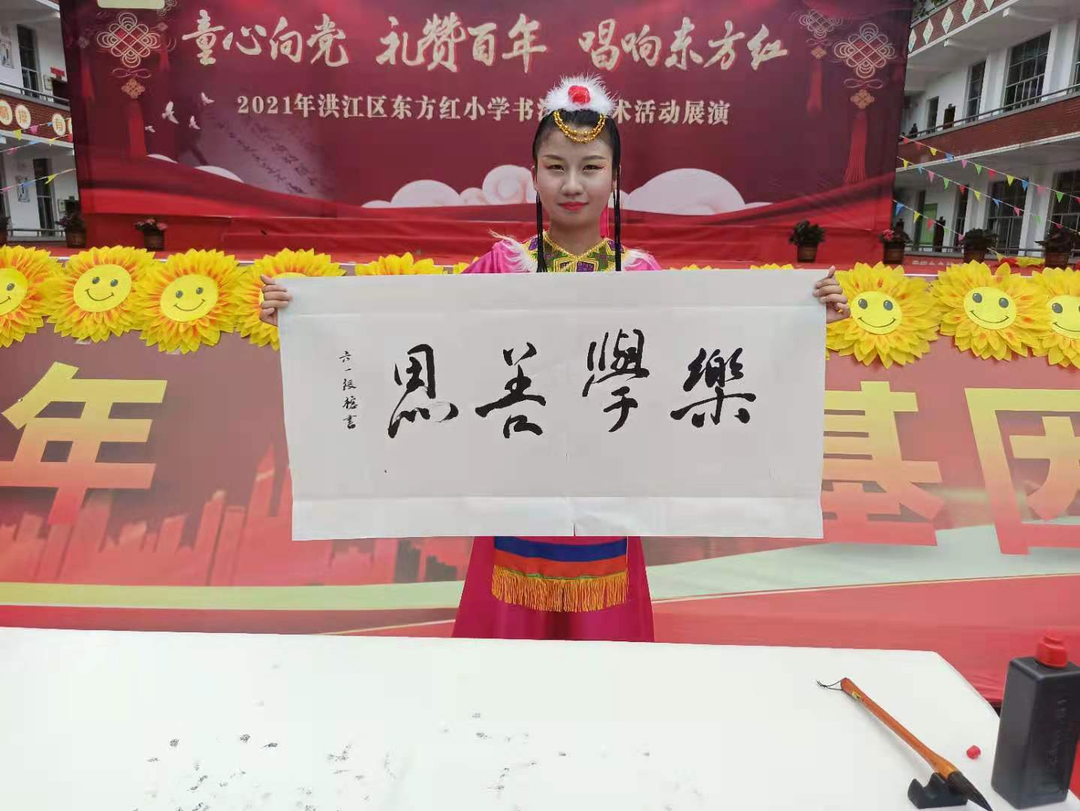 童心向党 礼赞百年 唱响东方红
2021年洪江区东方红小学书 术活动展演
樂學善思
六一 書
年 基因